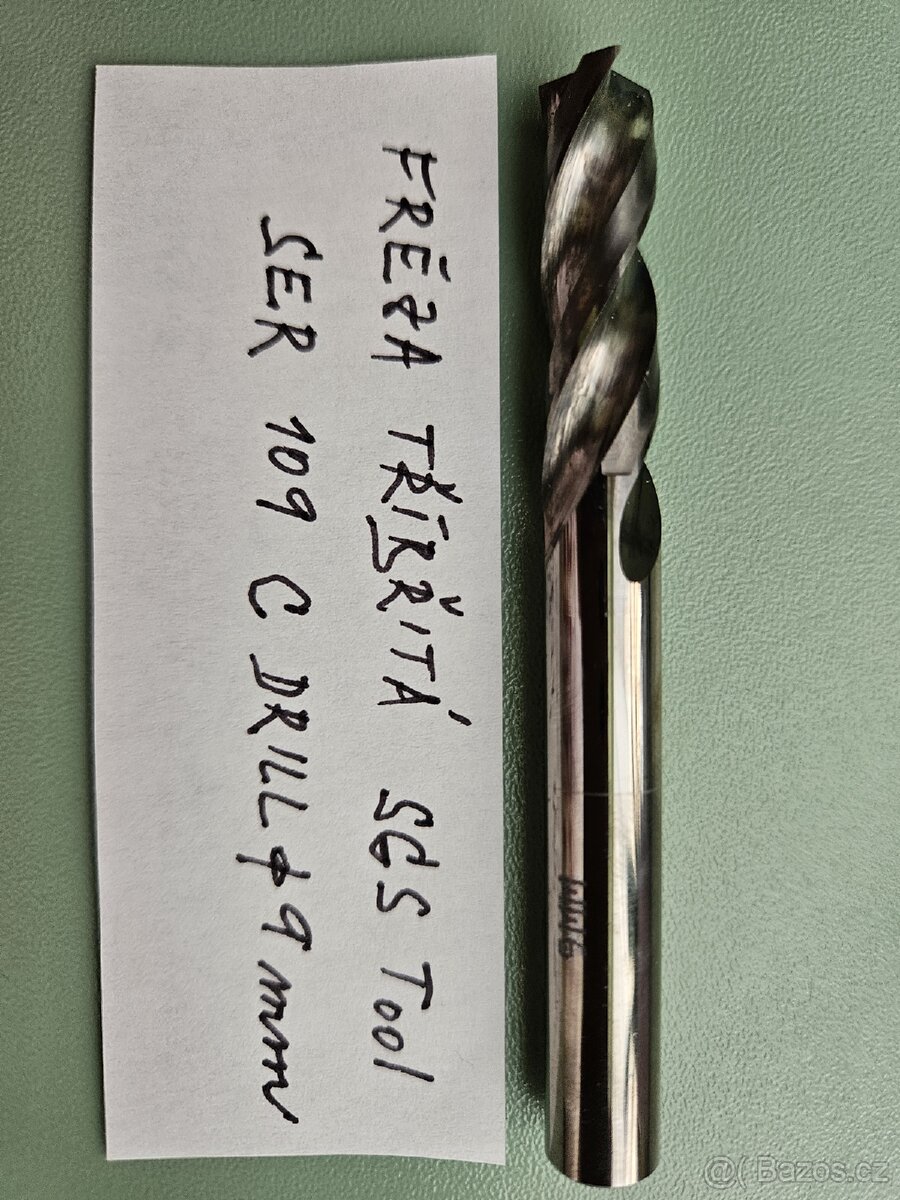 FRÉZA TŘÍBŘITÁ SGS Tool
SER 109 C DRILL ϕ 9 mm
9mm
@( Bazos.cz